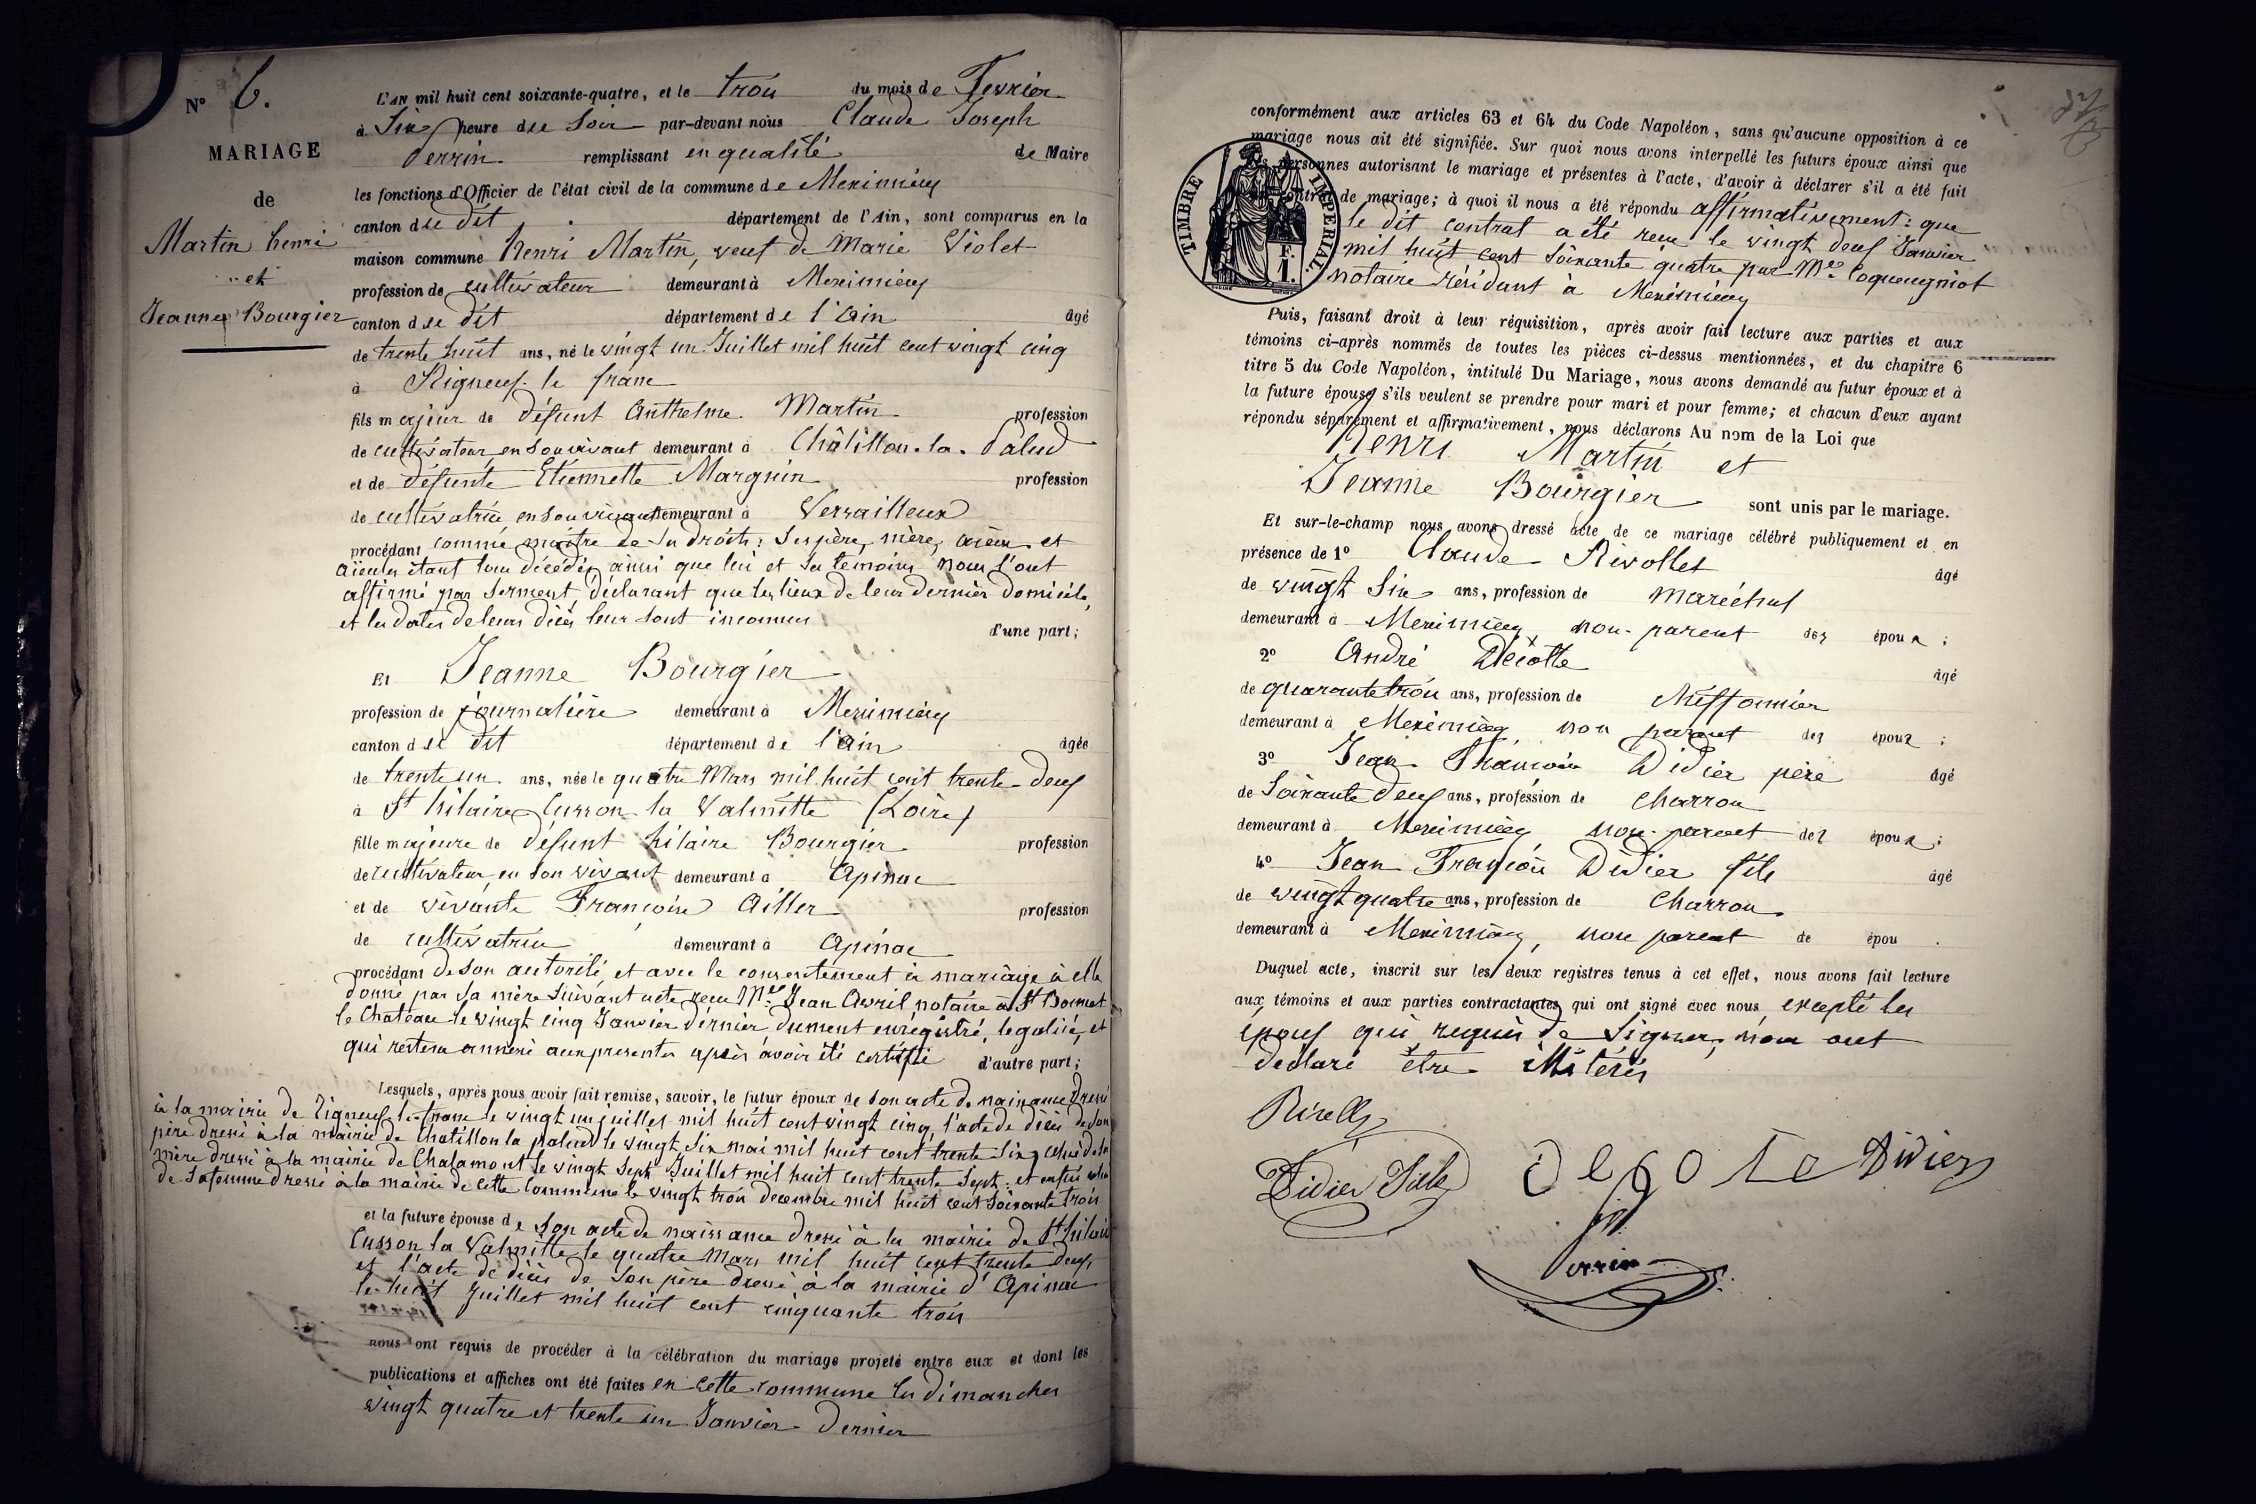 N° 6.
MARIAGE
de
Martin henri
et
Jeanne Bourgier
L'AN mil huit cent soixante-quatre, et le trois du mois de Fevrier
à Six heure du Soir par-devant nous Claude Joseph
Perrin remplissant en qualité de Maire
les fonctions d'Officier de l'état civil de la commune de Meximieux
canton du dit département de l'Ain, sont comparus en la
maison commune henri Martin, veuf de Marie Violet
profession de cultivateur demeurant à Meximieux
canton du dit département de l'ain âgé
de trente huit ans, né le vingt un Juillet mil huit cent vingt cinq
à Rigneux le franc
fils majeur de défunt Anthelme Martin profession
de cultivateur en son vivant demeurant à Châtillon-la-Palud
et de défunte Etiennette Marguin profession
de cultivatrice en son vivant demeurant à Versailleux
procédant comme maître de ses droits; Ses père, mère, aïeux et
aïeules étant tous décédés ainsi que lui et ses temoins nous l'ont
affirmé par serment, déclarant que les lieux de leur dernier domicile,
et les dates de leurs décès leur sont inconnus d'une part;
Et Jeanne Bourgier
profession de journalière demeurant à Meximieux
canton du dit département de l'ain âgée
de trente un ans, née le quatre Mars mil huit cent trente-deux
à St hilaire Cusson la Valmitte (Loire)
fille majeure de défunt hilaire Bourgier profession
de cultivateur en son vivant demeurant à Apinac
et de vivante Françoise Ailler profession
de cultivatrice demeurant à Apinac
procédant de son autorité et avec le consentement à mariage à elle
donné par sa mère suivant acte reçu Me Jean Avril notaire à St Bonnet
le Château le vingt cinq Janvier dernier dument enrégistré, legalisé, et
qui restera annexé aux presentes après avoir été certifié d'autre part;
Lesquels, après nous avoir fait remise, savoir, le futur époux de son acte de naissance dressé
à la mairie de Rigneux le franc le vingt un juillet mil huit cent vingt cinq, l'acte de décès de son
père dressé à la mairie de Chatillon la palud le vingt six mai mil huit cent trente six, celui de sa
mère dressé à la mairie de Chalamont le vingt sept Juillet mil huit cent trente sept; et enfin celui
de sa femme dressé à la mairie de cette Commune le vingt trois decembre mil huit cent soixante trois
et la future épouse de son acte de naissance dressé à la mairie de St hilaire
Cusson la Valmitte le quatre Mars mil huit cent trente deux,
et l'acte de décès de son père dressé à la mairie d'Apinac
le huit Juillet mil huit cent cinquante trois
nous ont requis de procéder à la célébration du mariage projeté entre eux et dont les
publications et affiches ont été faites en cette commune les dimanches
vingt quatre et trente un Janvier dernier
conformément aux articles 63 et 64 du Code Napoléon, sans qu'aucune opposition à ce
mariage nous ait été signifiée. Sur quoi nous avons interpellé les futurs époux ainsi que
les personnes autorisant le mariage et présentes à l'acte, d'avoir à déclarer s'il a été fait
contrat de mariage; à quoi il nous a été répondu affirmativement: que
le dit contrat a été reçu le vingt deux Janvier
mil huit cent soixante quatre par Me Coqueugniot
notaire résidant à Meximieux
TIMBRE IMPERIAL.
F.
1.
Puis, faisant droit à leur réquisition, après avoir fait lecture aux parties et aux
témoins ci-après nommés de toutes les pièces ci-dessus mentionnées, et du chapitre 6
titre 5 du Code Napoléon, intitulé Du Mariage, nous avons demandé au futur époux et à
la future épouse s'ils veulent se prendre pour mari et pour femme; et chacun d'eux ayant
répondu séparément et affirmativement, nous déclarons Au nom de la Loi que
henri Martin et
Jeanne Bourgier sont unis par le mariage.
Et sur-le-champ nous avons dressé acte de ce mariage célébré publiquement et en
présence de 1° Claude Rivollet âgé
de vingt Six ans, profession de maréchal
demeurant à Meximieux non-parent des époux;
2° André Décotte âgé
de quarante trois ans, profession de chiffonnier
demeurant à Meximieux, non parent des époux;
3° Jean François Didier père âgé
de Soixante deux ans, profession de charron
demeurant à Meximieux non-parent des époux;
4° Jean François Didier fils âgé
de vingt quatre ans, profession de charron
demeurant à Meximieux, non parent de épou .
Duquel acte, inscrit sur les deux registres tenus à cet effet, nous avons fait lecture
aux témoins et aux parties contractantes qui ont signé avec nous, excepté les
époux qui, requis de signer, nous ont
declaré être illiterés
Didier Fils
Didier
Perrin